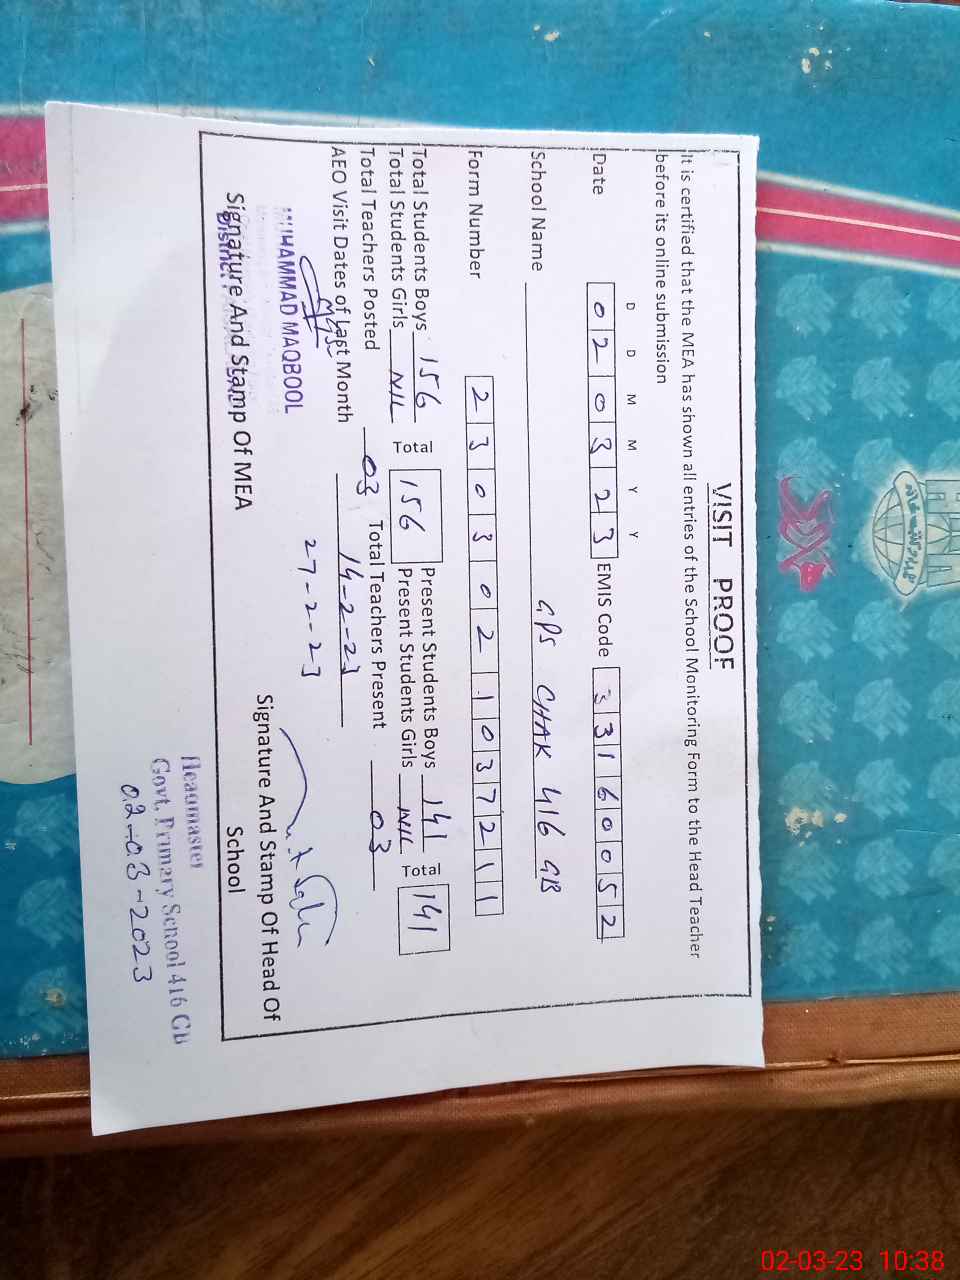 VISIT PROOF
It is certified that the MEA has shown all entries of the School Monitoring Form to the Head Teacher
before its online submission
D D M M Y Y
Date 020323 EMIS Code 33160052
School Name GPS CHAK 416 GB
Form Number 2303021037211
Total Students Boys 156 Total 156 Present Students Boys 141 Total 141
Total Students Girls NIL Present Students Girls NIL
Total Teachers Posted 03 Total Teachers Present 03
AEO Visit Dates of Last Month 14-2-23
27-2-23
MUHAMMAD MAQBOOL
District
Signature And Stamp Of MEA
Signature And Stamp Of Head Of
School
Headmaster
Govt. Primary School 416 GB
02-03-2023
02-03-23 10:38